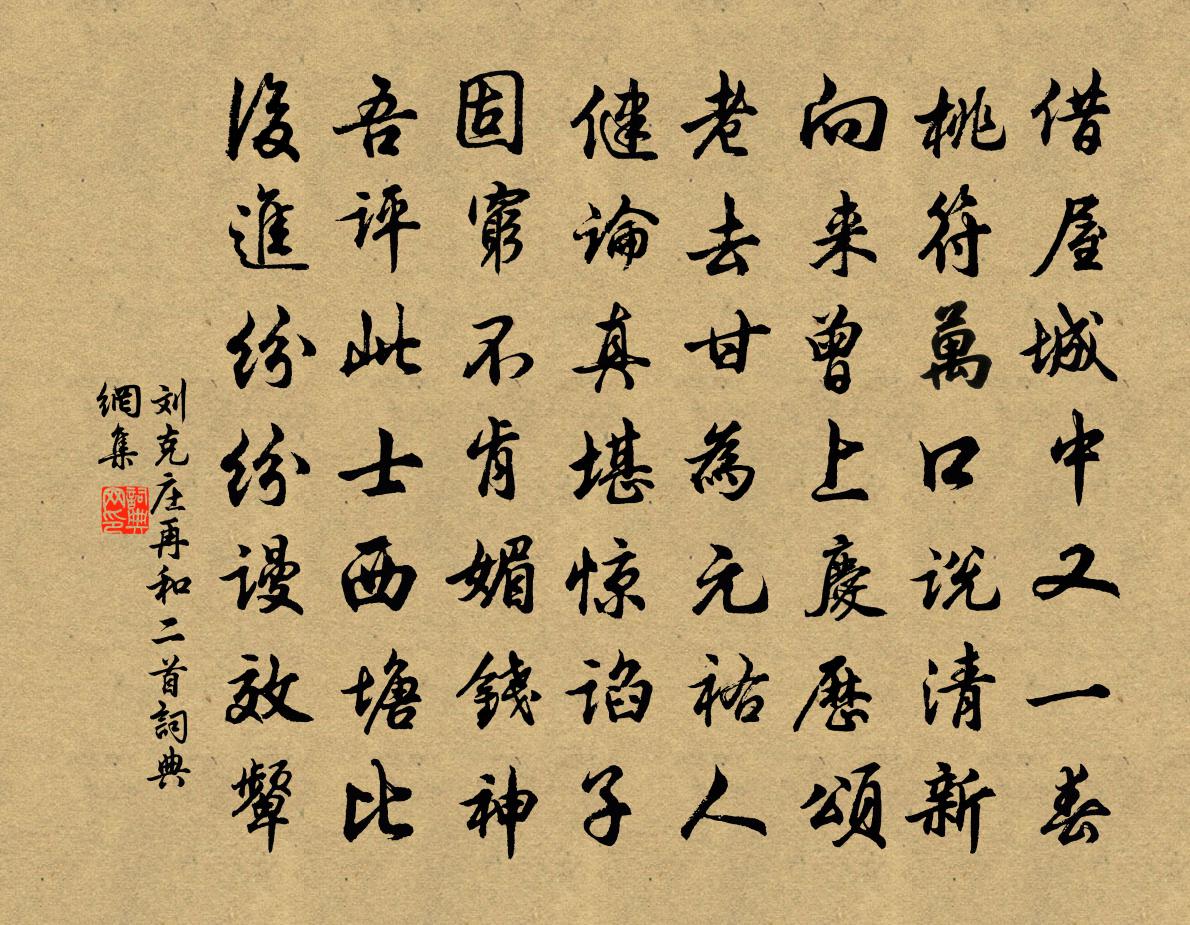 借屋城中又一春
桃符萬口説清新
向来曾上慶歷頌
老去甘為元祐人
健論真堪惊谄子
固窮不肯媚錢神
吾評此士西塘比
後進紛紛謾效顰
刘克庄再和二首詞典
網集
詞典
网印